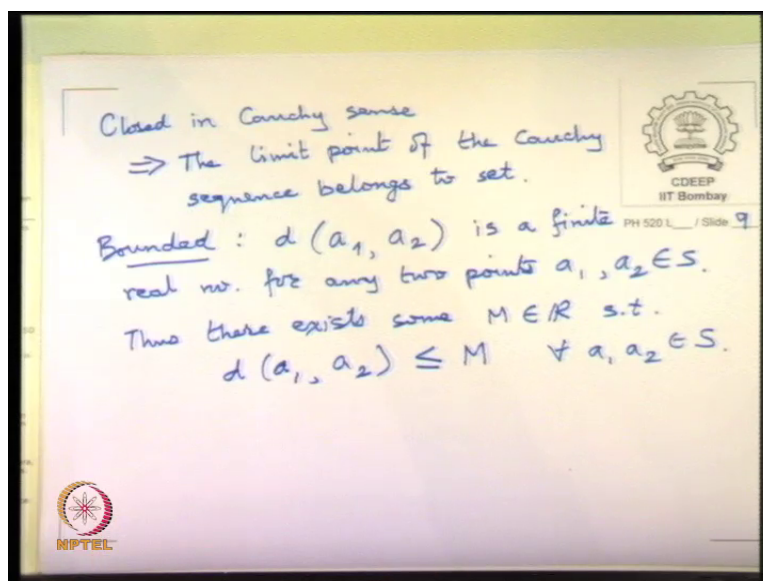 Closed in Cauchy sense
⇒ The limit point of the Cauchy
sequence belongs to set.
CDEEP
IIT Bombay
PH 520 L__ / Slide 9
Bounded : d (a₁, a₂) is a finite
real no. for any two points a₁, a₂ ∈ S.
Thus there exists some M ∈ ℝ s.t.
d (a₁, a₂) ≤ M ∀ a₁ a₂ ∈ S.
NPTEL